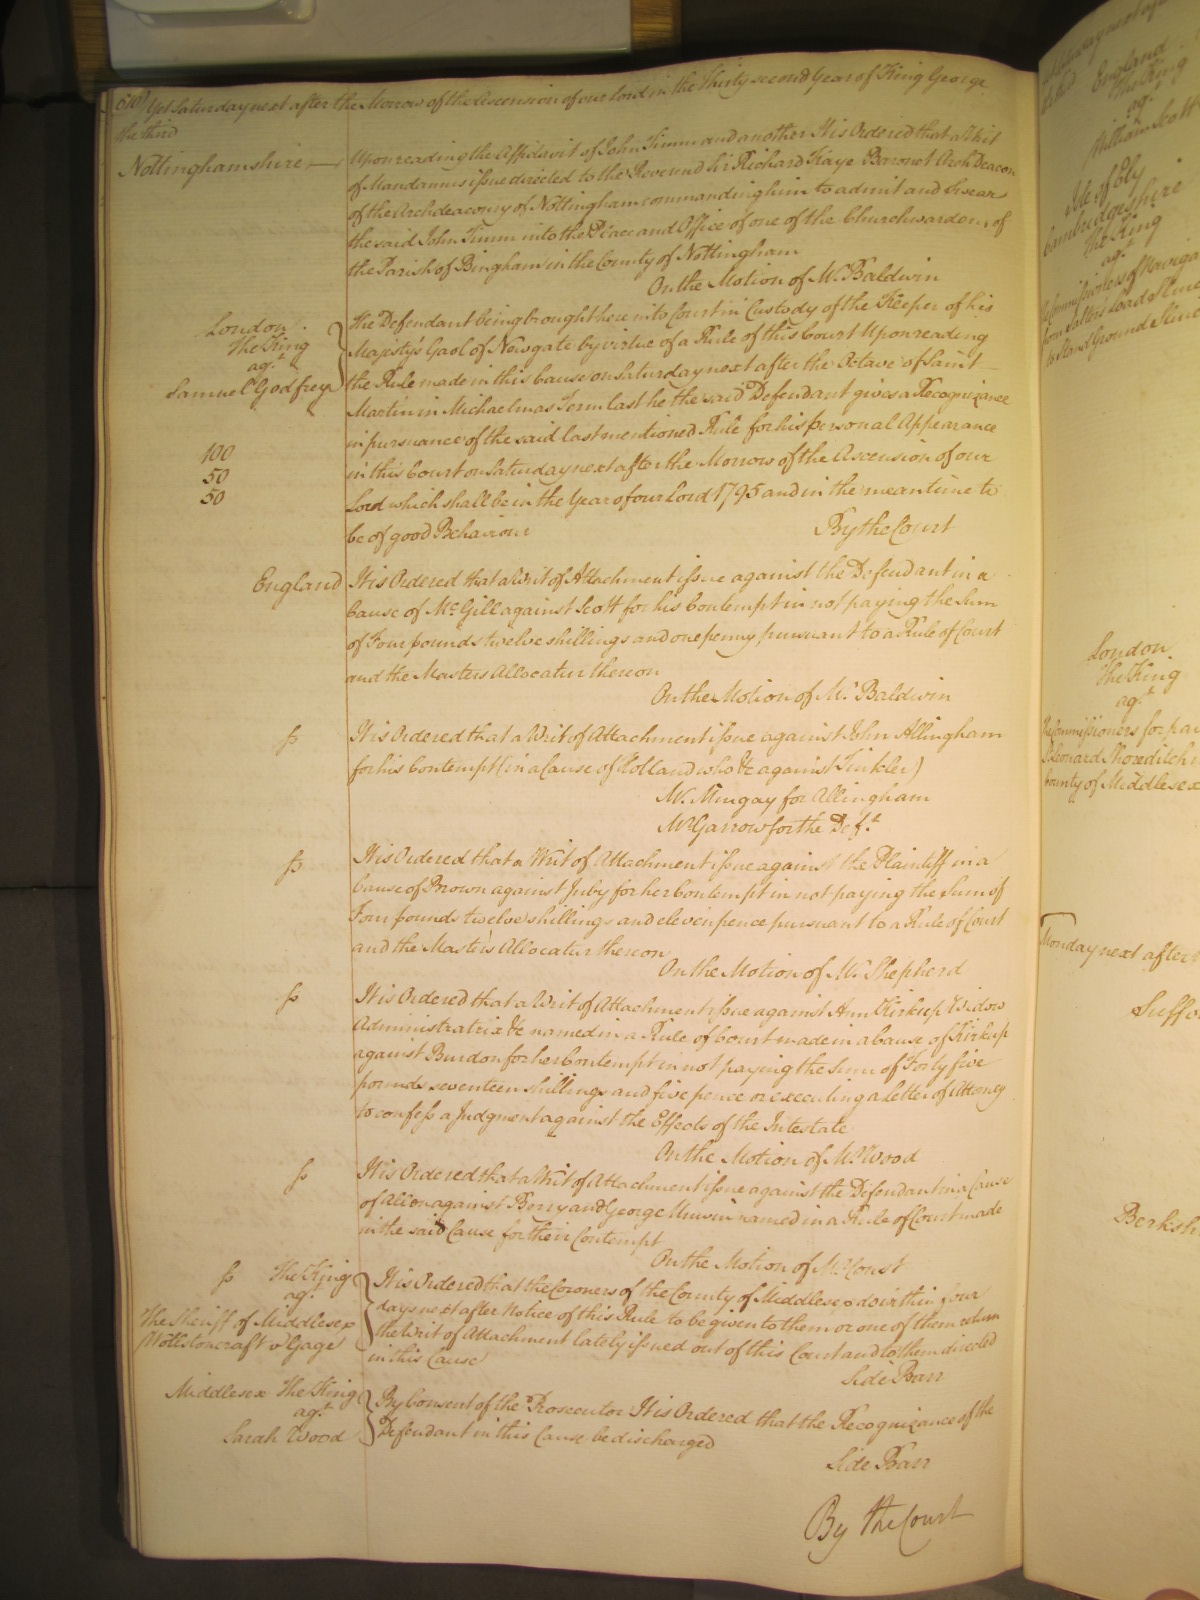 Yet Saturday next after the Morrow of the Ascension of our Lord in the Thirty second Year of King George
the third
Nottinghamshire — Upon reading the Affidavit of John Timm and another It is Ordered that a Writ
of Mandamus issue directed to the Reverend Sir Richard Kaye Baronet Arch Deacon
of the Archdeaconry of Nottingham commanding him to admit and swear
the said John Timm into the Place and Office of one of the Churchwardens of
the Parish of Bingham in the County of Nottingham
On the Motion of Mr. Baldwin
London
The King
agt.
Samuel Godfrey
The Defendant being brought here into Court in Custody of the Keeper of his
Majesty's Gaol of Newgate by virtue of a Rule of this Court Upon reading
the Rule made in this Cause on Saturday next after the Octave of Saint
Martin in Michaelmas Term last he the said Defendant gives a Recognizance
in pursuance of the said last mentioned Rule for his personal Appearance
in this Court on Saturday next after the Morrow of the Ascension of our
Lord which shall be in the Year of our Lord 1795 and in the mean time to
be of good Behaviour
100
50
50
By the Court
England It is Ordered that a Writ of Attachment issue against the Defendant in a
Cause of McGill against Scott for his Contempt in not paying the Sum
of Four pounds twelve shillings and one penny pursuant to a Rule of Court
and the Masters Allocatur thereon
On the Motion of Mr. Baldwin
fs It is Ordered that a Writ of Attachment issue against John Allingham
for his Contempt (in a Cause of Holland who &c against Tinkler)
Mr. Mingay for Allingham
Mr. Garrow for the Deft.
fs It is Ordered that a Writ of Attachment issue against the Plaintiff in a
Cause of Brown against Juby for her Contempt in not paying the Sum of
Four pounds twelve shillings and eleven pence pursuant to a Rule of Court
and the Masters Allocatur thereon
On the Motion of Mr. Shepherd
fs It is Ordered that a Writ of Attachment issue against Ann Kirkup Widow
Administratrix &c named in a Rule of Court made in a Cause of Kirkup
against Burdon for her Contempt in not paying the Sum of Forty five
pounds seventeen shillings and five pence or executing a Letter of Attorney
to confess a Judgment against the Effects of the Intestate
On the Motion of Mr. Wood
fs It is Ordered that a Writ of Attachment issue against the Defendant in a Cause
of against Berry and George Unwin named in a Rule of Court made
in the said Cause for their Contempt
On the Motion of Mr. Const
fs The King
agt.
The Sheriff of Middlesex
Wollstoncraft v Gage
It is Ordered that the Coroners of the County of Middlesex do within four
days next after Notice of this Rule to be given to them or one of them return
the Writ of Attachment lately issued out of this Court and to them directed
in this Cause
Side Barr
Middlesex The King
agt.
Sarah Wood
By Consent of the Prosecutor It is Ordered that the Recognizance of the
Defendant in this Cause be discharged
Side Barr
By the Court
England
The King
agt.
William Scott
Isle of Ely
Cambridgeshire
The King
agt.
London
The King
agt.
County of Middlesex
Monday next after
Suffo
Berksh